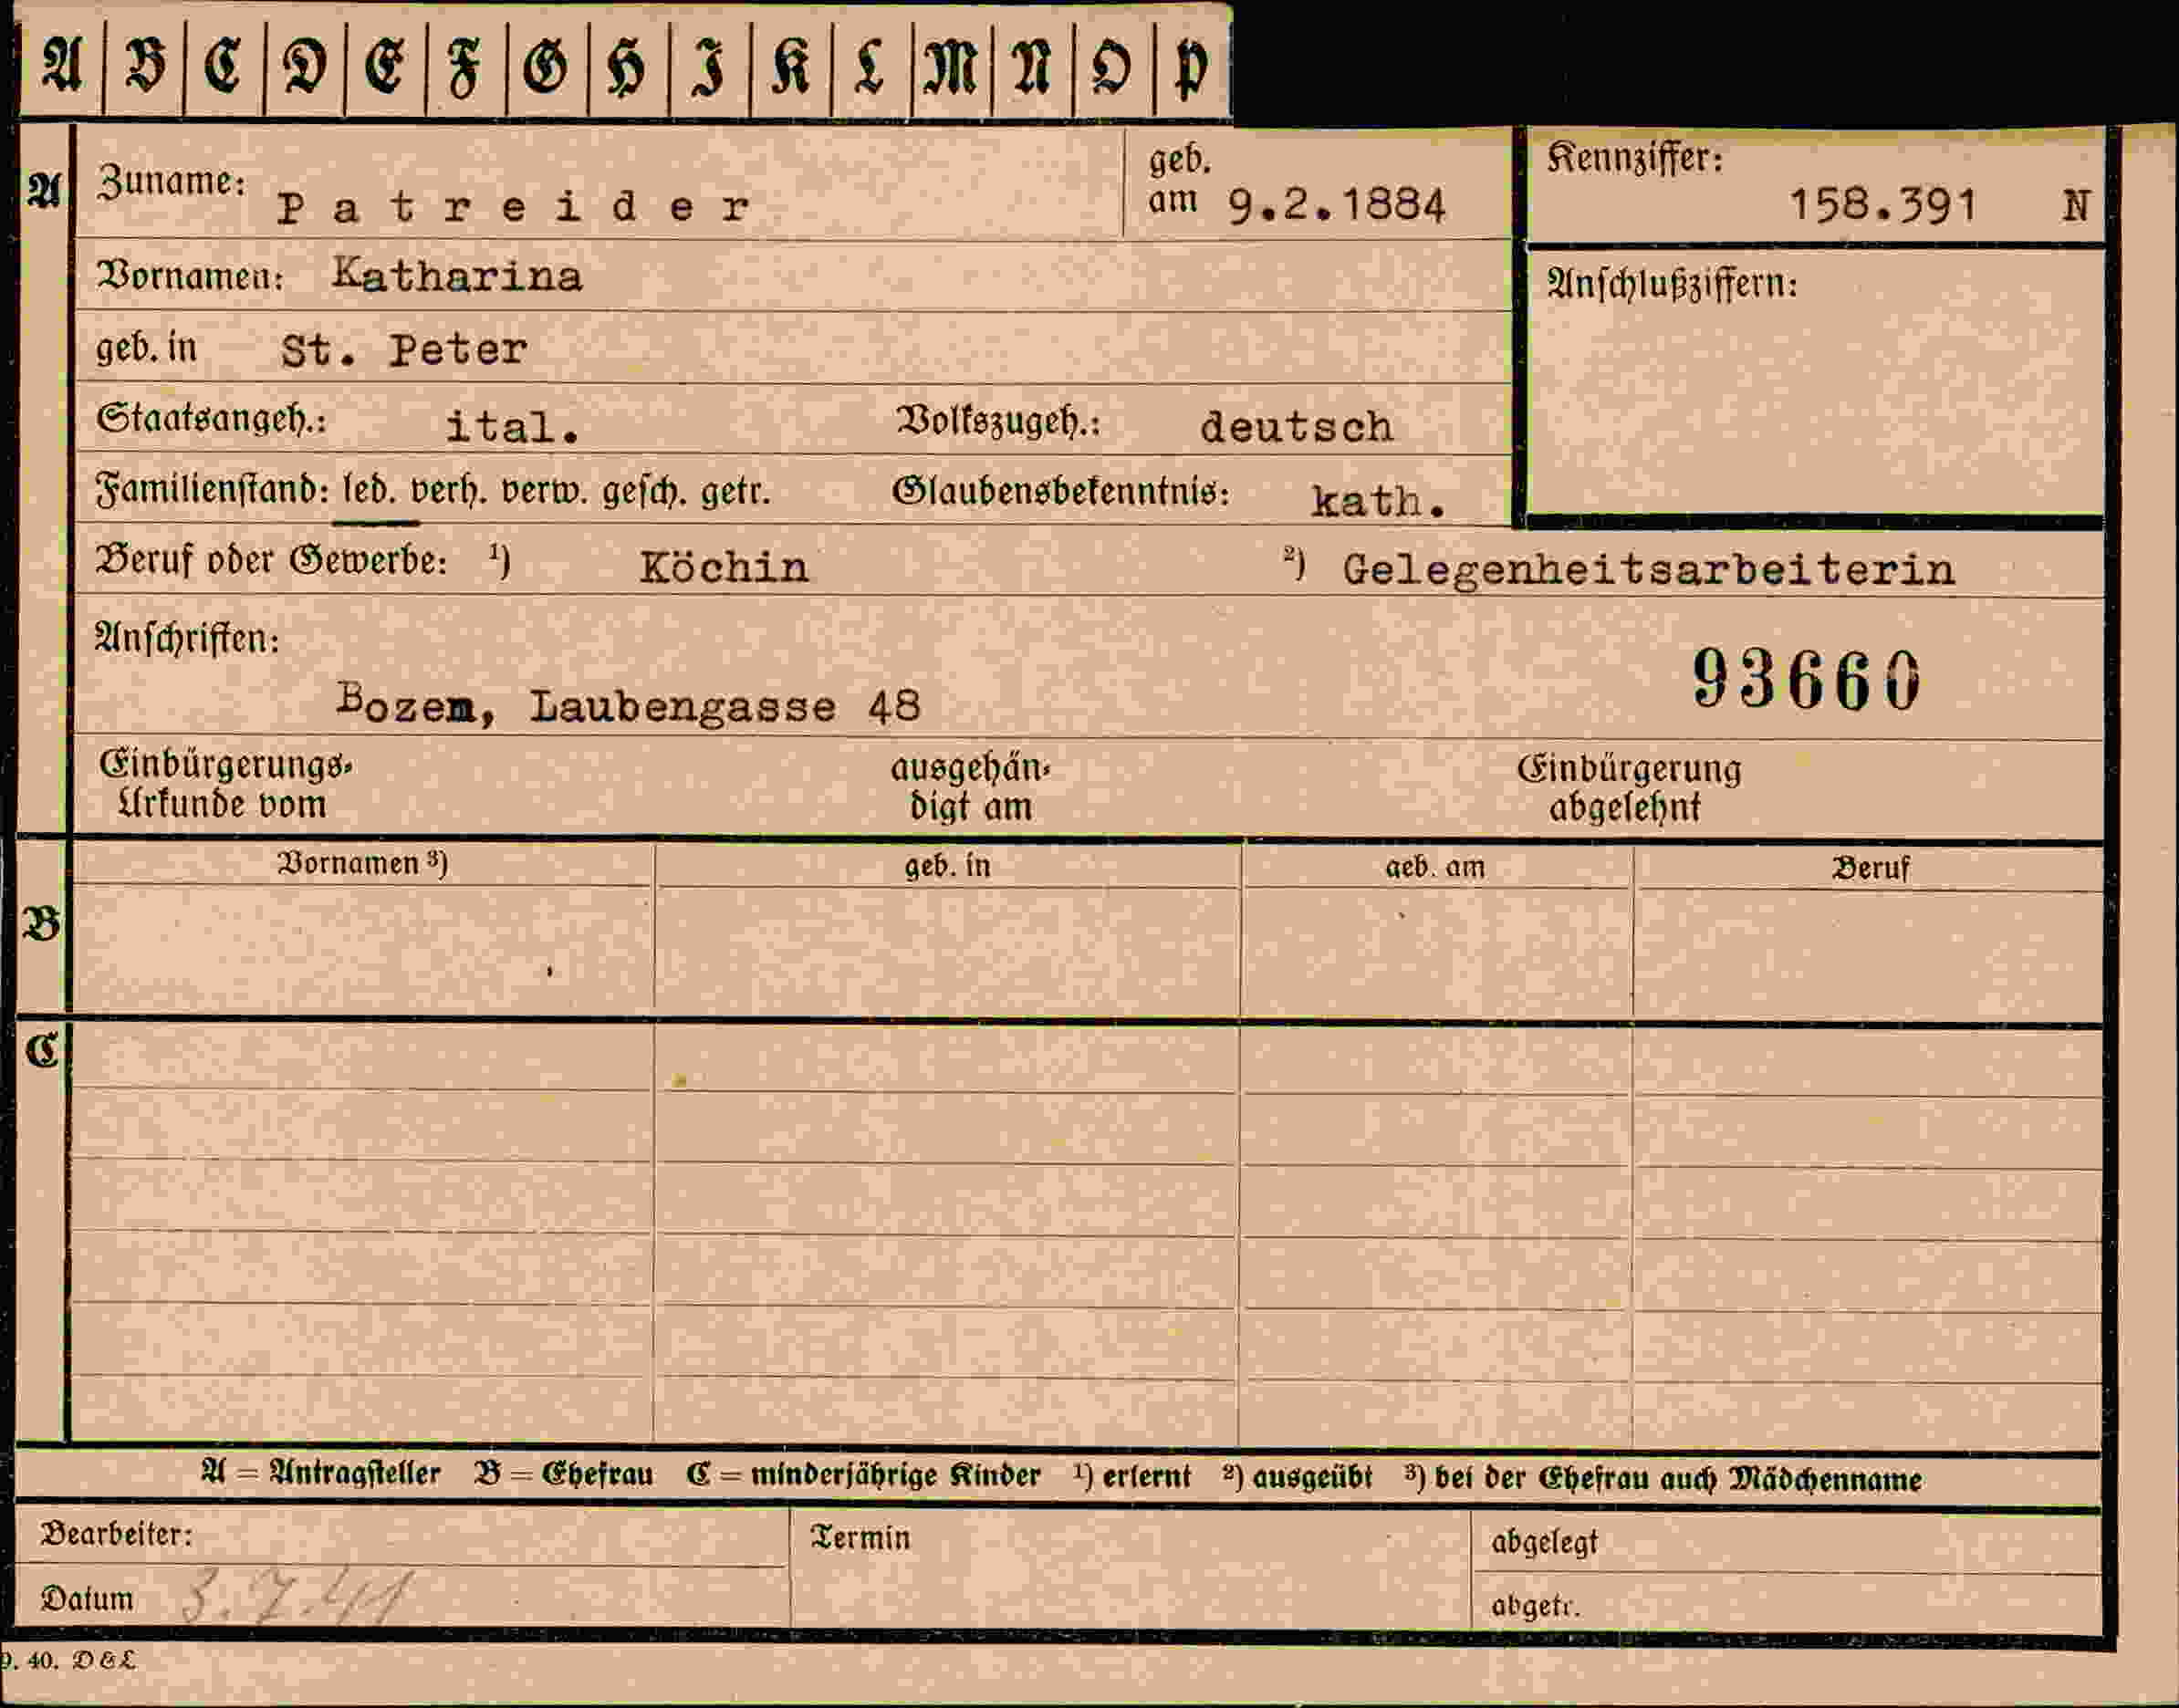 A B C D E F G H I K L M N O P
A Zuname: Patreider geb. am 9.2.1884 Kennziffer: 158.391 N
Vornamen: Katharina Anschlußziffern:
geb. in St. Peter
Staatsangeh.: ital. Volkszugeh.: deutsch
Familienstand: led. verh. verw. gesch. getr. Glaubensbekenntnis: kath.
Beruf oder Gewerbe: 1) Köchin 2) Gelegenheitsarbeiterin
Anschriften:
93660
Bozen, Laubengasse 48
Einbürgerungs- ausgehän- Einbürgerung
Urkunde vom digt am abgelehnt
Vornamen 3) geb. in geb. am Beruf
B
C
A = Antragsteller B = Ehefrau C = minderjährige Kinder 1) erlernt 2) ausgeübt 3) bei der Ehefrau auch Mädchenname
Bearbeiter: Termin abgelegt
Datum 3.7.41 abgetr.
9. 40. D&L